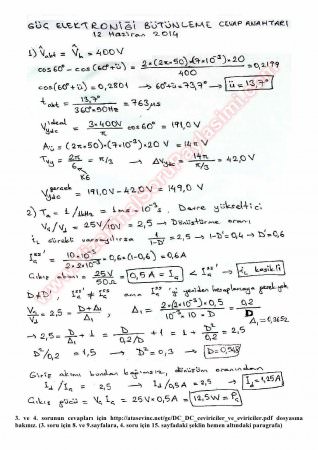 GÜÇ ELEKTRONİĞİ BÜTÜNLEME CEVAP ANAHTARI
12 Haziran 2014
1) V̂abt = V̂h = 400V
cos60° - cos(60°+ü) = 2×(2π×50)×(7×10⁻³)×20 / 400 = 0,2199
cos(60°+ü) = 0,2801 → 60°+ü = 73,7° → ü = 13,7°
tabt = 13,7° / 360°×50Hz = 763μs
Vydc ideal = 3×400V / π cos60° = 191,0V
Aü = (2π×50)×(7×10⁻³)×20 V = 14π V
Tvy = 2π / 6 = π/3 → ΔVydc = 14π / π/3 = 42,0V
K6
Vydc gerçek = 191,0V - 42,0V = 149,0 V
2) Ta = 1/1kHz = 1ms = 10⁻³s, Devre yükseltici
Vç/Vd = 25V/10V = 2,5 → Dönüştürme oranı
iL sürekli varsayılırsa 1/1-D' = 2,5 → 1-D' = 0,4 → D' = 0,6
= 10×10⁻³ / 2×2×10⁻³ ×0,6×(1-0,6) = 0,6A
Çıkış akımı = 25V / 50Ω = 0,5A = Iç < → iL kesikli
D≠D', ≠ ama yi yeniden hesaplamaya gerek yok
Vç/Vd = 2,5 = D+Δ₁ / Δ₁, Δ₁ = 2×(2×10⁻³)×0,5 / 10⁻³×10×D = 0,2 / D
→ 2,5 = D/Δ₁ + 1 = D / 0,2/D + 1 = D²/0,2 + 1 = 2,5
Δ₁ = 0,3652
D²/0,2 = 1,5 → D² = 0,3 → D = 0,548
Giriş akımı bundan bağımsız, dönüşüm oranından
Id/Iç = 2,5 → Id/0,5A = 2,5 → Id = 1,25A
Çıkış gücü = Vç Iç = 25V×0,5A = 12,5W = Pç
3. ve 4. sorunun cevapları için http://atasevinc.net/ge/DC_DC_ceviriciler_ve_eviriciler.pdf dosyasına
bakınız. (3. soru için 8. ve 9.sayfalara, 4. soru için 15. sayfadaki şeklin hemen altındaki paragrafa)